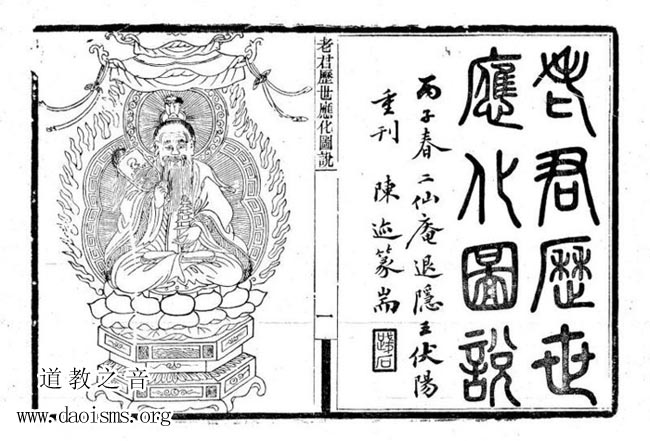 老君歷世
應化圖說
丙子春二仙庵退隱王伏陽
重刊 陳迹篆耑
老君歷世應化圖說
一
道教之音
www.daoisms.org